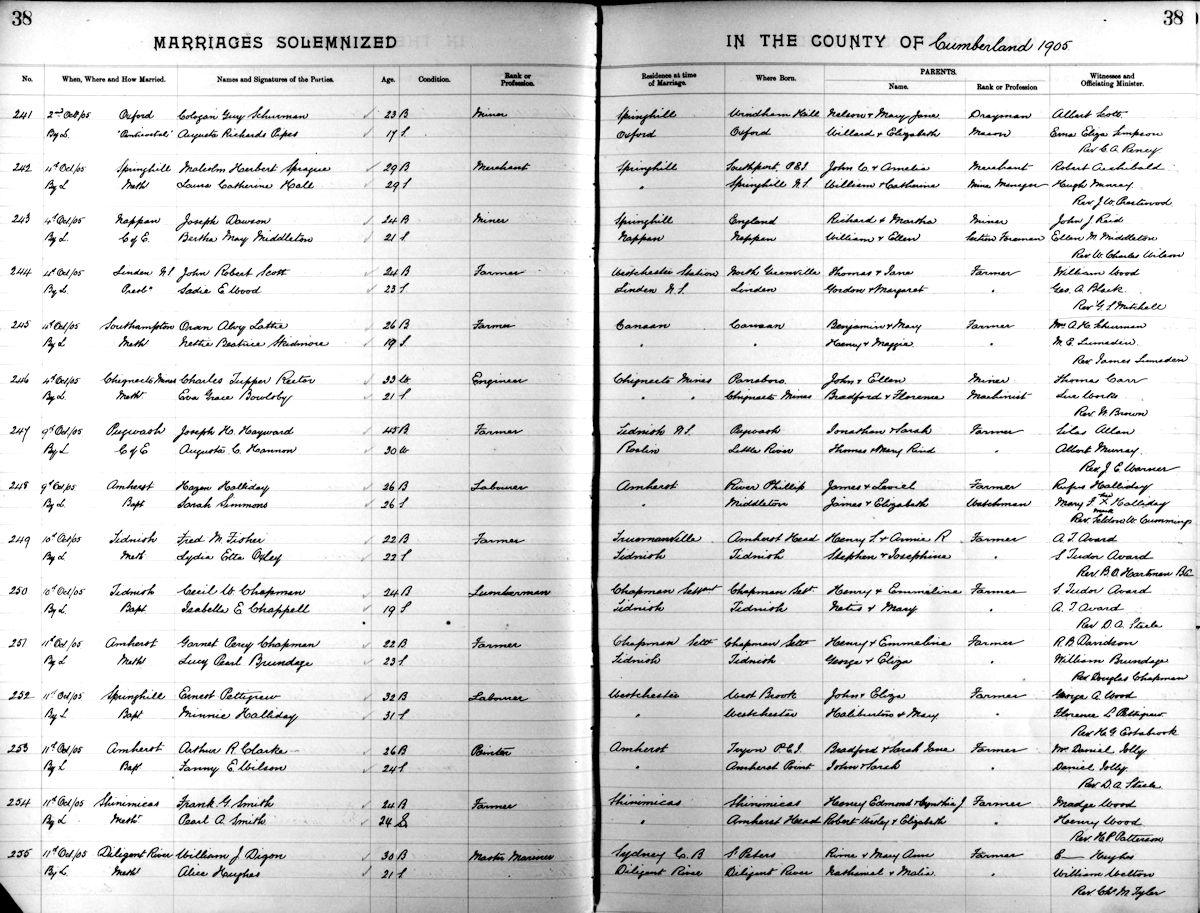 38 38
MARRIAGES SOLEMNIZED IN THE COUNTY OF Cumberland 1905
No. When, Where and How Married. Names and Signatures of the Parties. Age. Condition. Rank or Profession. Residence at time of Marriage. Where Born. PARENTS. Name. Rank or Profession Witnesses and Officiating Minister.
241 2nd Oct/05 Oxford Cologan Guy Schurman 23 B Miner Springhill Windham Hill Nelson & Mary Jane Drayman Albert Scott
By L. Augusta Richards Pipes 17 S Oxford Oxford Willard & Elizabeth Mason Erna Eliza Simpson
Rev C. A.
242 11th Oct/05 Springhill Malcolm Herbert Sprague 29 B Merchant Springhill Southport P.E.I John C. & Amelia Merchant Robert Archibald
By L Meth Laura Catherine Hall 29 S " Springhill N.S William & Catherine Mine Manager Hugh Murray
Rev J. W. Prestwood
243 4th Oct/05 Nappan Joseph Dawson 24 B Miner Springhill England Richard & Martha Miner John J Reid
By L. C of E. Bertha May Middleton 21 S Nappan Nappan William & Ellen Section Foreman Ellen M. Middleton
Rev W. Charles Wilson
244 4th Oct/05 Linden N.S John Robert Scott 24 B Farmer Westchester Station North Greenville Thomas & Jane Farmer William Wood
By L. Presb" Sadie E Wood 23 S Linden N.S. Linden Gordon & Margaret " Geo. A Black
Rev G. S Mitchell
245 4th Oct/05 Southampton Oran Alvy Lottie 26 B Farmer Canaan Canaan Benjamin & Mary Farmer Mrs A. H. Schurman
By L Meth Nettie Beatrice Skidmore 19 S " " Henry & Maggie " M. E. Lumsden
Rev James Lumsden
246 4th Oct/05 Chignecto Mines Charles Tupper Rector 33 W Engineer Chignecto Mines Parrsboro John & Ellen Miner Thomas Carr
By L. Meth Eva Grace Bowlby 21 S " " Chignecto Mines Bradford & Florence Machinist Works
Rev W Brown
247 9th Oct/05 Pugwash Joseph H. Hayward 45 B Farmer Tidnish N.S. Pugwash Jonathan & Sarah Farmer Silas Allan
By L C of E Augusta C. Hannon 30 W Roslin Little River Thomas & Mary Rind " Albert Murray
Rev J. E Warner
248 9th Oct/05 Amherst Hazen Halliday 26 B Labourer Amherst River Phillip James & Farmer Rufus Halliday
By L Bapt Sarah Simmons 26 S " Middleton James & Elizabeth Watchman Mary J her X mark Halliday
Rev. Feldon W. Cummings
249 10th Oct/05 Tidnish Fred M. Fisher 22 B Farmer Truemanville Amherst Head Henry S & Annie R Farmer A J Avard
By L. Meth Lydia Etta Oxley 22 S Tidnish Tidnish Stephen & Josephine " S Tudor Avard
Rev B. O. Hartman B.A.
250 10th Oct/05 Tidnish Cecil W. Chapman 24 B Lumberman Chapman Settment Chapman Sett. Henry & Emmeline Farmer S. Tudor Avard
By L. Bapt Isabella E Chappell 19 S Tidnish Tidnish & Mary " A. J Avard
Rev D. A. Steele
251 11th Oct/05 Amherst Garnet Percy Chapman 22 B Farmer Chapman Settt Chapman Settt Henry & Emmeline Farmer R. B Davidson
By L Meth Lucy Pearl Brundage 23 S Tidnish Tidnish George & Eliza " William Brundage
Rev Douglas Chapman
252 11th Oct/05 Springhill Ernest Pettigrew 32 B Labourer Westchester West Brook John & Eliza Farmer George A Wood
By L Bapt Minnie Halliday 31 S " Westchester Haliburton & Mary " Florence L Pettigrew
Rev H. G Estabrook
253 11th Oct/05 Amherst Arthur R. Clarke 26 B Painter Amherst Tryon P.E.I. Bradford & Sarah Jane Farmer Mrs Daniel Jolly
By L Bapt Fanny E Wilson 24 S " Amherst Point John & Sarah " Daniel Jolly
Rev D. A Steele
254 11th Oct/05 Shinimicas Frank G. Smith 24 B Farmer Shinimicas Shinimicas Henry Edmond & Cynthia J Farmer Madge Wood
By L. Meth Pearl A Smith 24 S " Amherst Head Robert Wesley & Elizabeth " Henry Wood
Rev. H. P. Patterson
255 11th Oct/05 Diligent River William J Digon 30 B Master Mariner Sydney C. B St Peters & Mary Ann Farmer E— Hughes
By L. Meth Alice Hughes 21 S Diligent River Diligent River Nathaniel & " William Welton
Rev Chs M Tyler